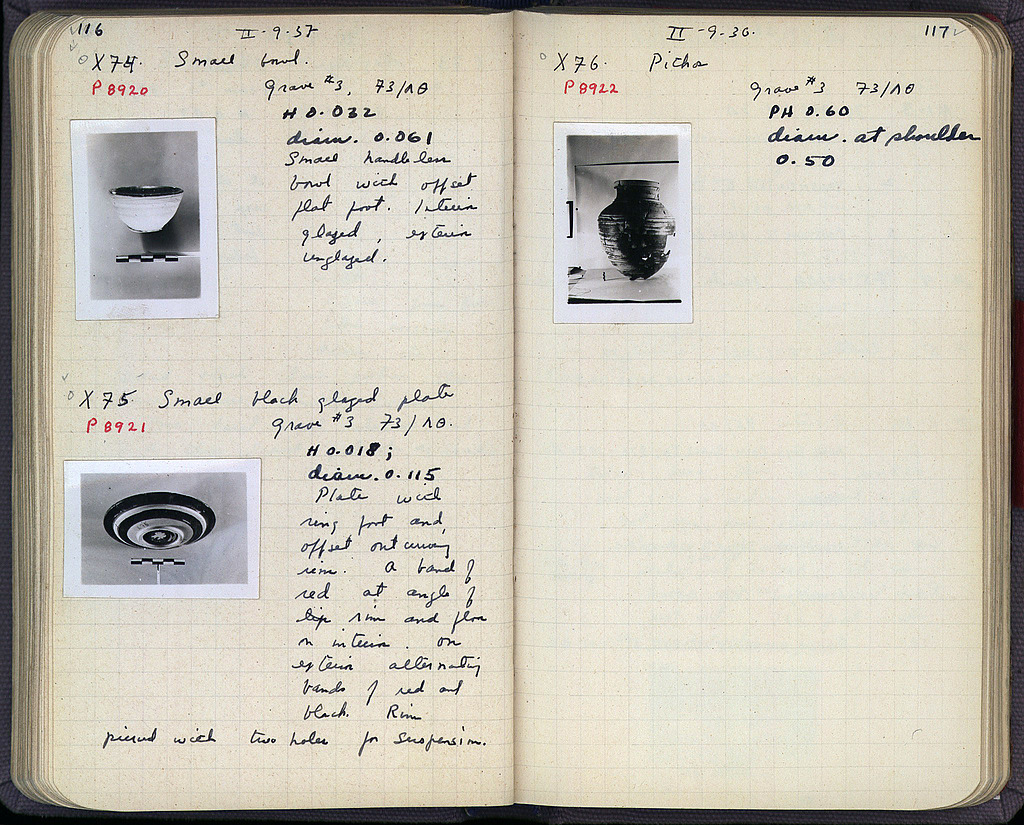 116
II - 9 - 37
X74. Small bowl.
P 8920
Grave #3, 73/ΛΘ
H 0.032
diam. 0.061
Small handleless
bowl with offset
flat foot. Interior
glazed, exterior
unglazed.
X75 Small black glazed plate
P 8921
Grave #3 73/ΛΘ.
H 0.018;
diam. 0.115
Plate with
ring foot and
offset outcurving
rim. A band of
red at angle of
lip rim and floor
on interior. On
exterior alternating
bands of red and
black. Rim
pierced with two holes for suspension.
II - 9 - 36
117
X76. Pithos
P 8922
Grave #3 73/ΛΘ
PH 0.60
diam. at shoulder
0.50